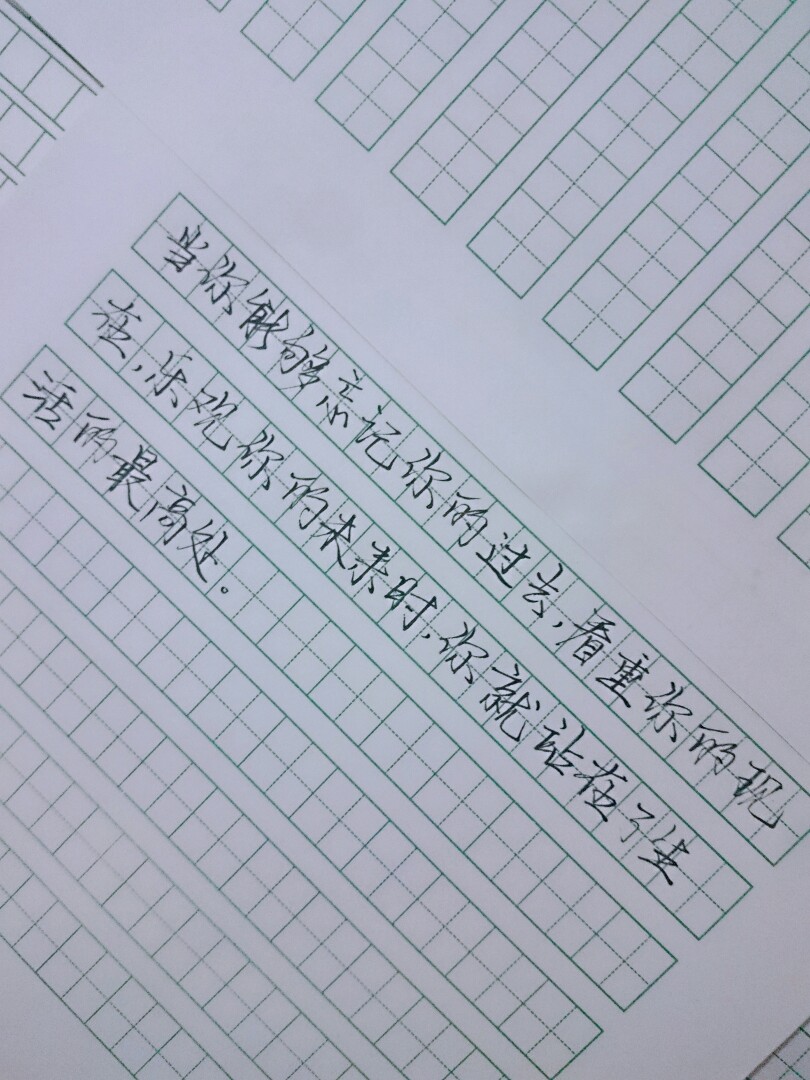 当你能够忘记你的过去,看重你的现
在,乐观你的未来时,你就站在了生
活的最高处。